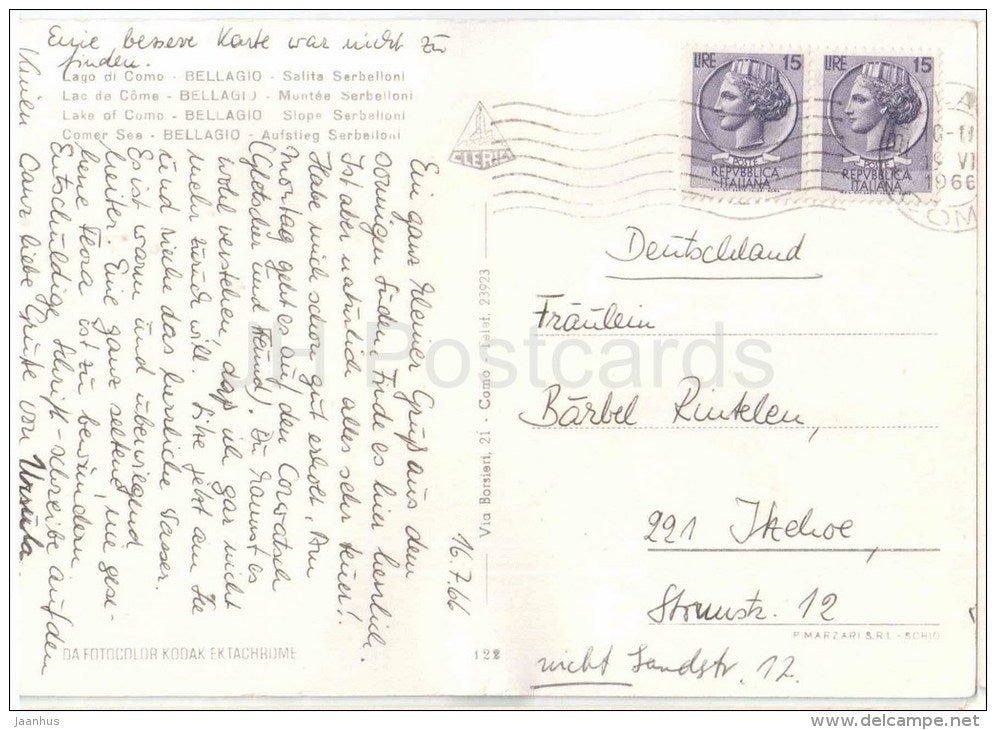 Eine bessere Karte war nicht zu
finden.
Lago di Como - BELLAGIO - Salita Serbelloni
Lac de Côme - BELLAGIO - Montée Serbelloni
Lake of Como - BELLAGIO Slope Serbelloni
Comer See - BELLAGIO - Aufstieg Serbelloni
16.7.66
Ein ganz kleiner Gruß aus dem
sonnigen Süden. Finde es hier herrlich.
Ist aber natürlich alles sehr teuer!
Habe mich schon gut erholt. Am
Montag geht es auf den Corvatsch
(Gletscher und Hund). Du kannst es
wohl verstehen, daß ich gar nicht
mehr zurück will. Sitze jetzt am See
und rieche das herrliche Wasser.
Es ist warm und überwiegend
heiter. Eine ganz seltend, nie gese-
hene Flora ist zu bewundern
Entschuldige Schrift - schreibe auf den
Knien Ganz liebe Grüße von Ursula.
CLERIA
Via Borsieri, 21 - Como - Telef. 23923
DA FOTOCOLOR KODAK EKTACHROME
122
LIRE 15
POSTE
REPVBBLICA
ITALIANA
LIRE 15
POSTE
REPVBBLICA
ITALIANA
VI
1966
COM
Deutschland
Fräulein
Bärbel Rintelen,
221 Itzehoe,
Stormstr. 12
P. MARZARI S.R.L. - SCHIO
nicht Sandstr. 12.
JH Postcards
jaanhus
www.delcampe.net